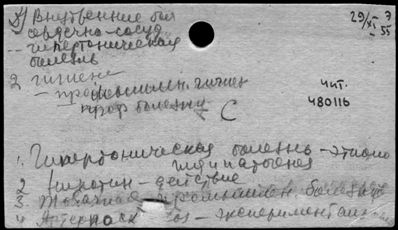 Внутренние бол
сердечно-сосуд.
-- гипертоническая
болезнь
2 гигиена
- промышлен. гигиен
проф болезни
С
29/XI - 55
Э
чит.
480116
1. Гипертоническая болезнь - этиоло
гия и патогенез
2 никотин - действие
3. Табачная промышлен болезни
4 Артер - эксперимент